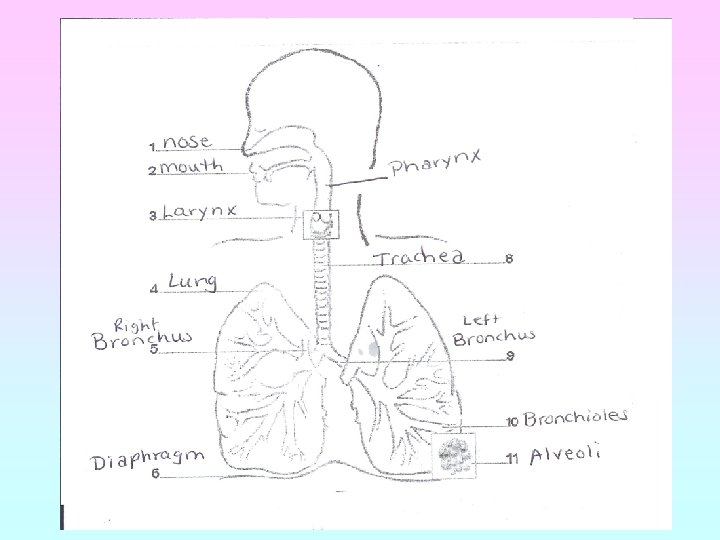 1 nose
2 mouth
Pharynx
3 Larynx
Trachea 8
4 Lung
Right
Bronchus
5
Left
Bronchus
9
10 Bronchioles
Diaphragm
6
11 Alveoli